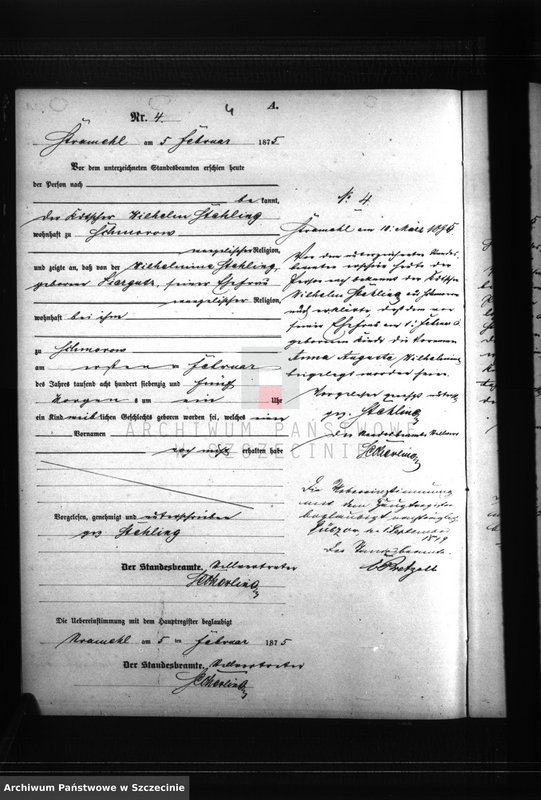 4
A.
Nr. 4.
Stramehl am 5 Februar 1875
Vor dem unterzeichneten Standesbeamten erschien heute
der Person nach
bekannt,
der Kutscher Wilhelm Stähling
wohnhaft zu Schmorow
evangelischer Religion,
und zeigte an, daß von der Wilhelmine Stähling,
geborenen seiner Ehefrau
evangelischer Religion,
wohnhaft bei ihm
zu Schmorow
am ersten Februar
des Jahres tausend acht hundert siebenzig und fünf
Morgens um ein Uhr
ein Kind weiblichen Geschlechts geboren worden sei, welches einen
Vornamen
noch nicht erhalten habe
Vorgelesen, genehmigt und unterschrieben
gez. Stähling
Der Standesbeamte. Stellvertreter
Die Uebereinstimmung mit dem Hauptregister beglaubigt
Stramehl am 5 ten Februar 1875
Der Standesbeamte. Stellvertreter
№ 4
Stramehl am 10. März 1875
Vor dem unterzeichneten Standes-
beamten erschien heute der
Person nach bekannt der Kutscher
Wilhelm Stähling zu Schmorow
und erklärte, daß dem von
seiner Ehefrau am 1. Februar
geborenen Kinde die Vornamen
Anna Auguste Wilhelmine
beigelegt worden seien.
Vorgelesen
gez. Stähling
Der Standesbeamte Stellvertr
Die Uebereinstimmung
mit dem Hauptregister
beglaubigt
September
1879
Der Standesbeamte.
ARCHIWUM PAŃSTWOWE
W SZCZECINIE
Archiwum Państwowe w Szczecinie